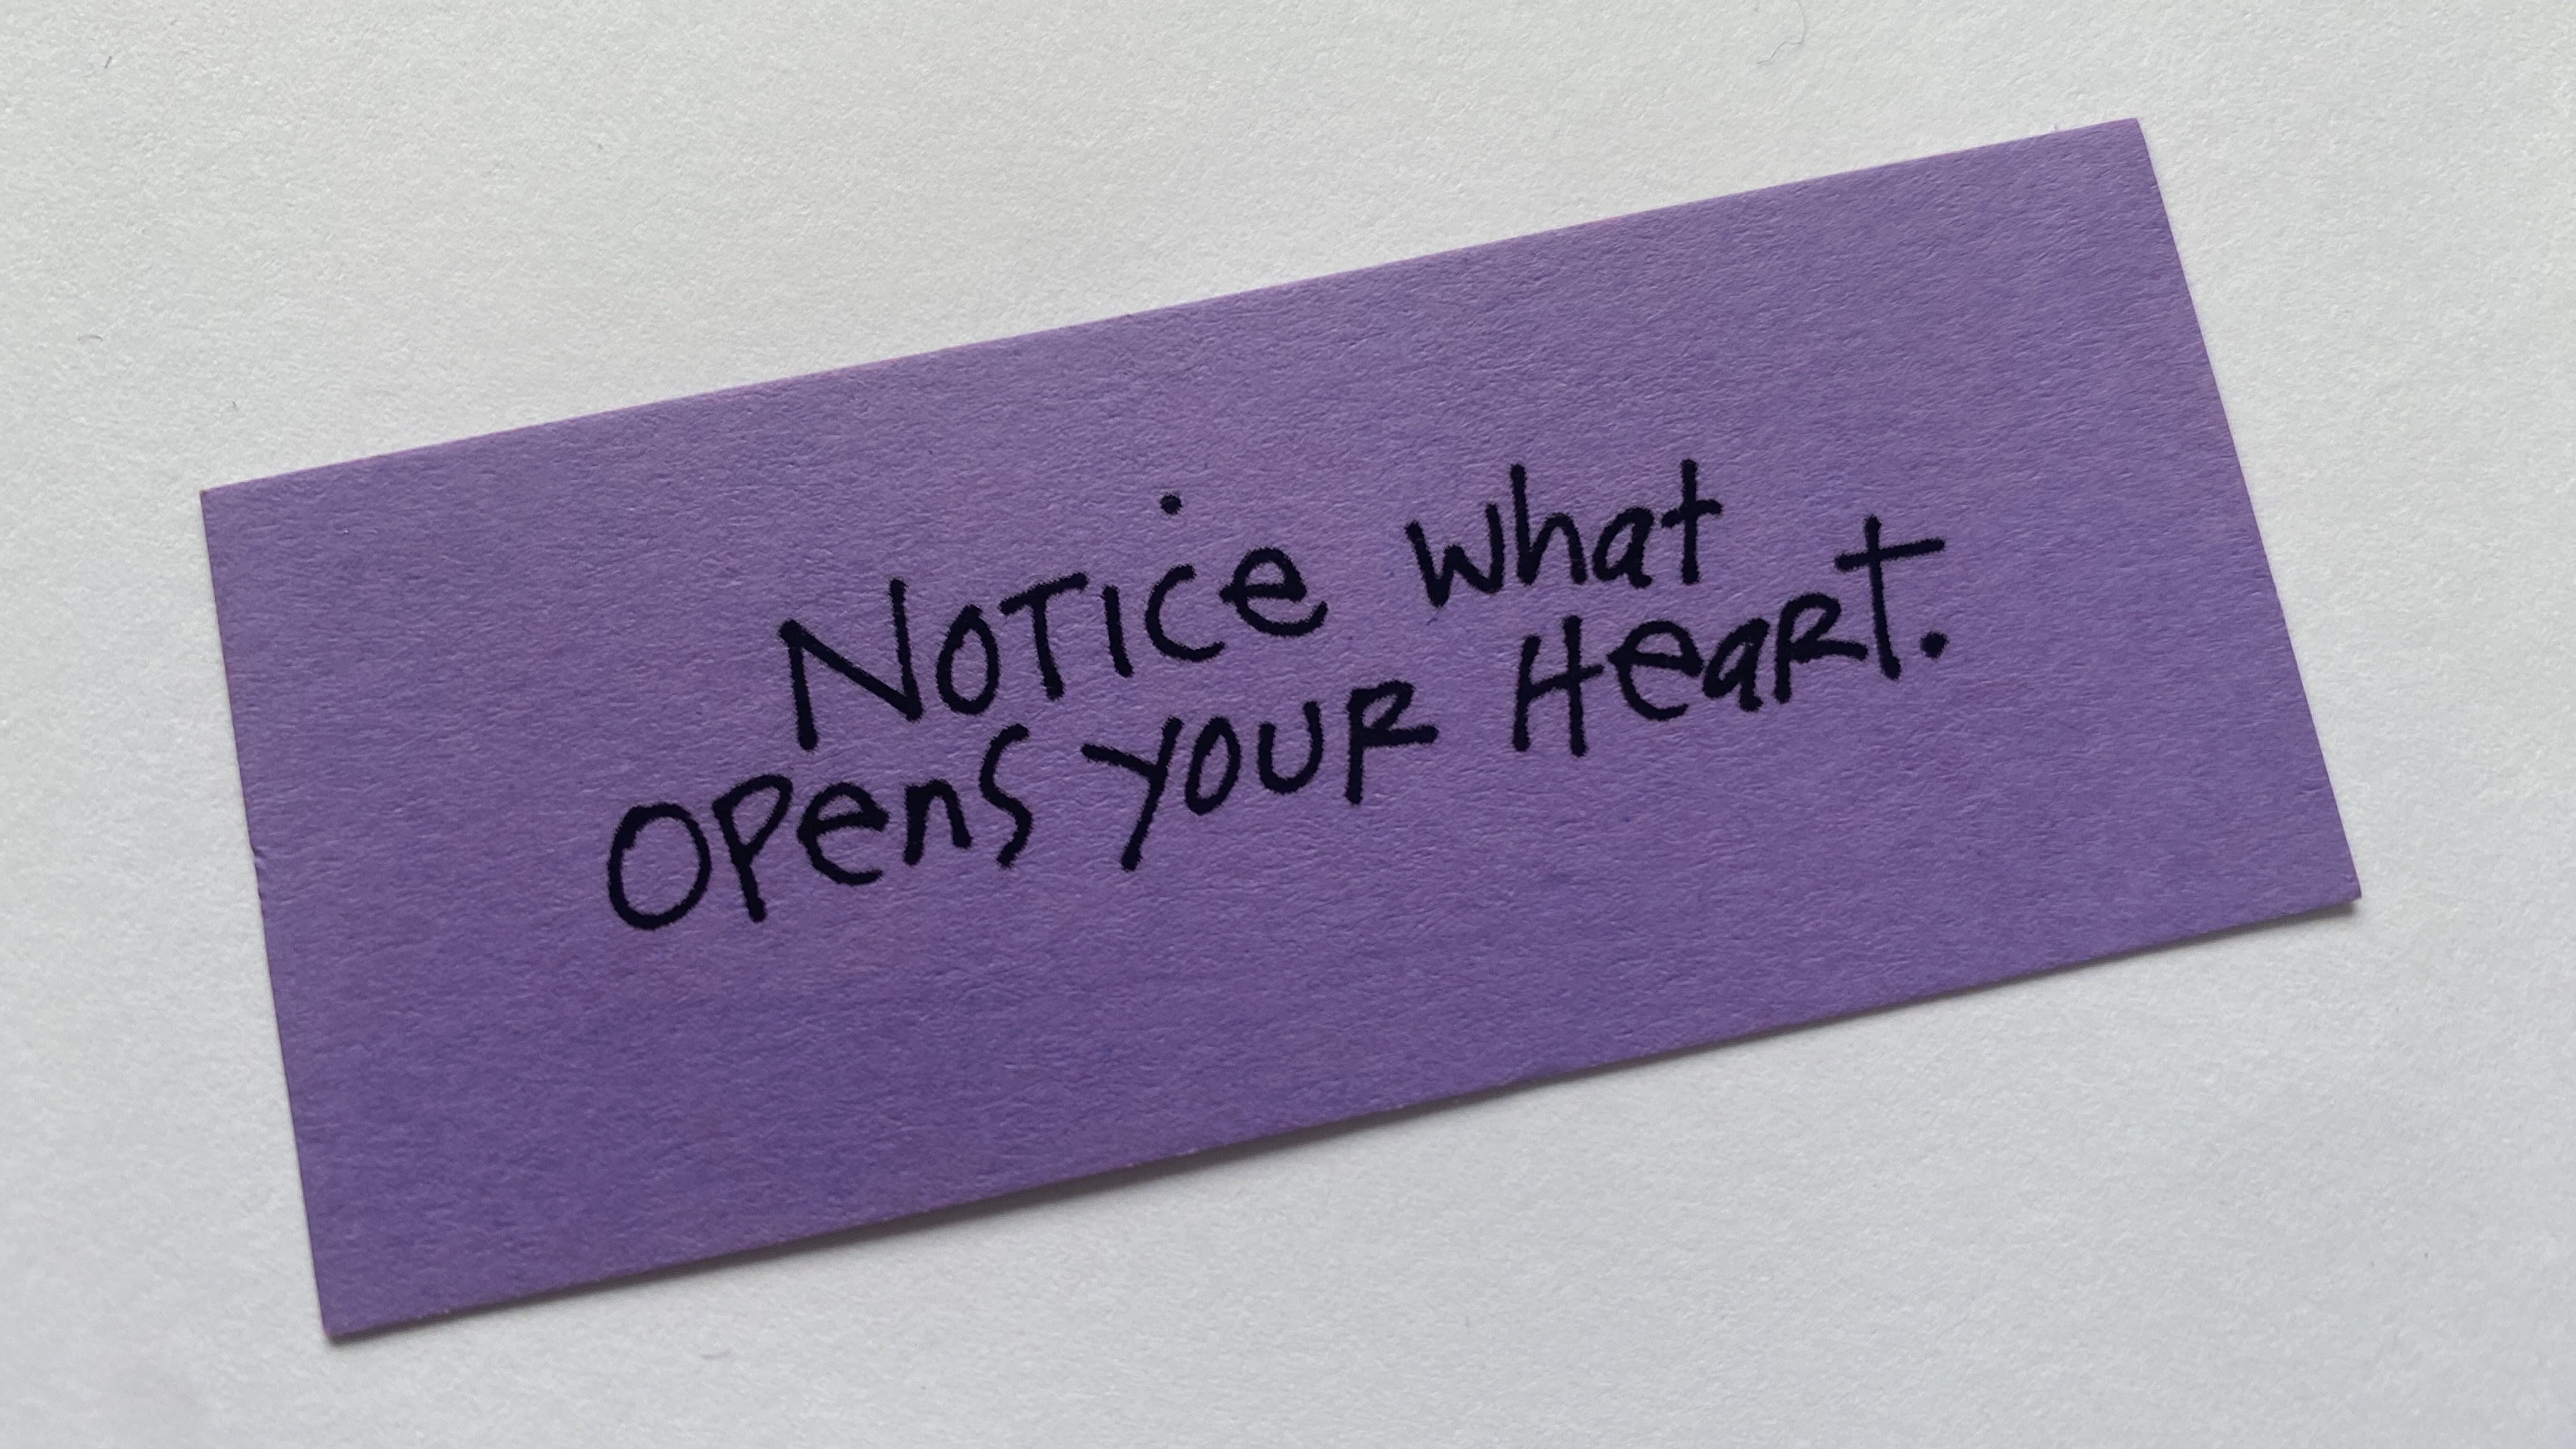 NOTICE what
Opens YOUR Heart.